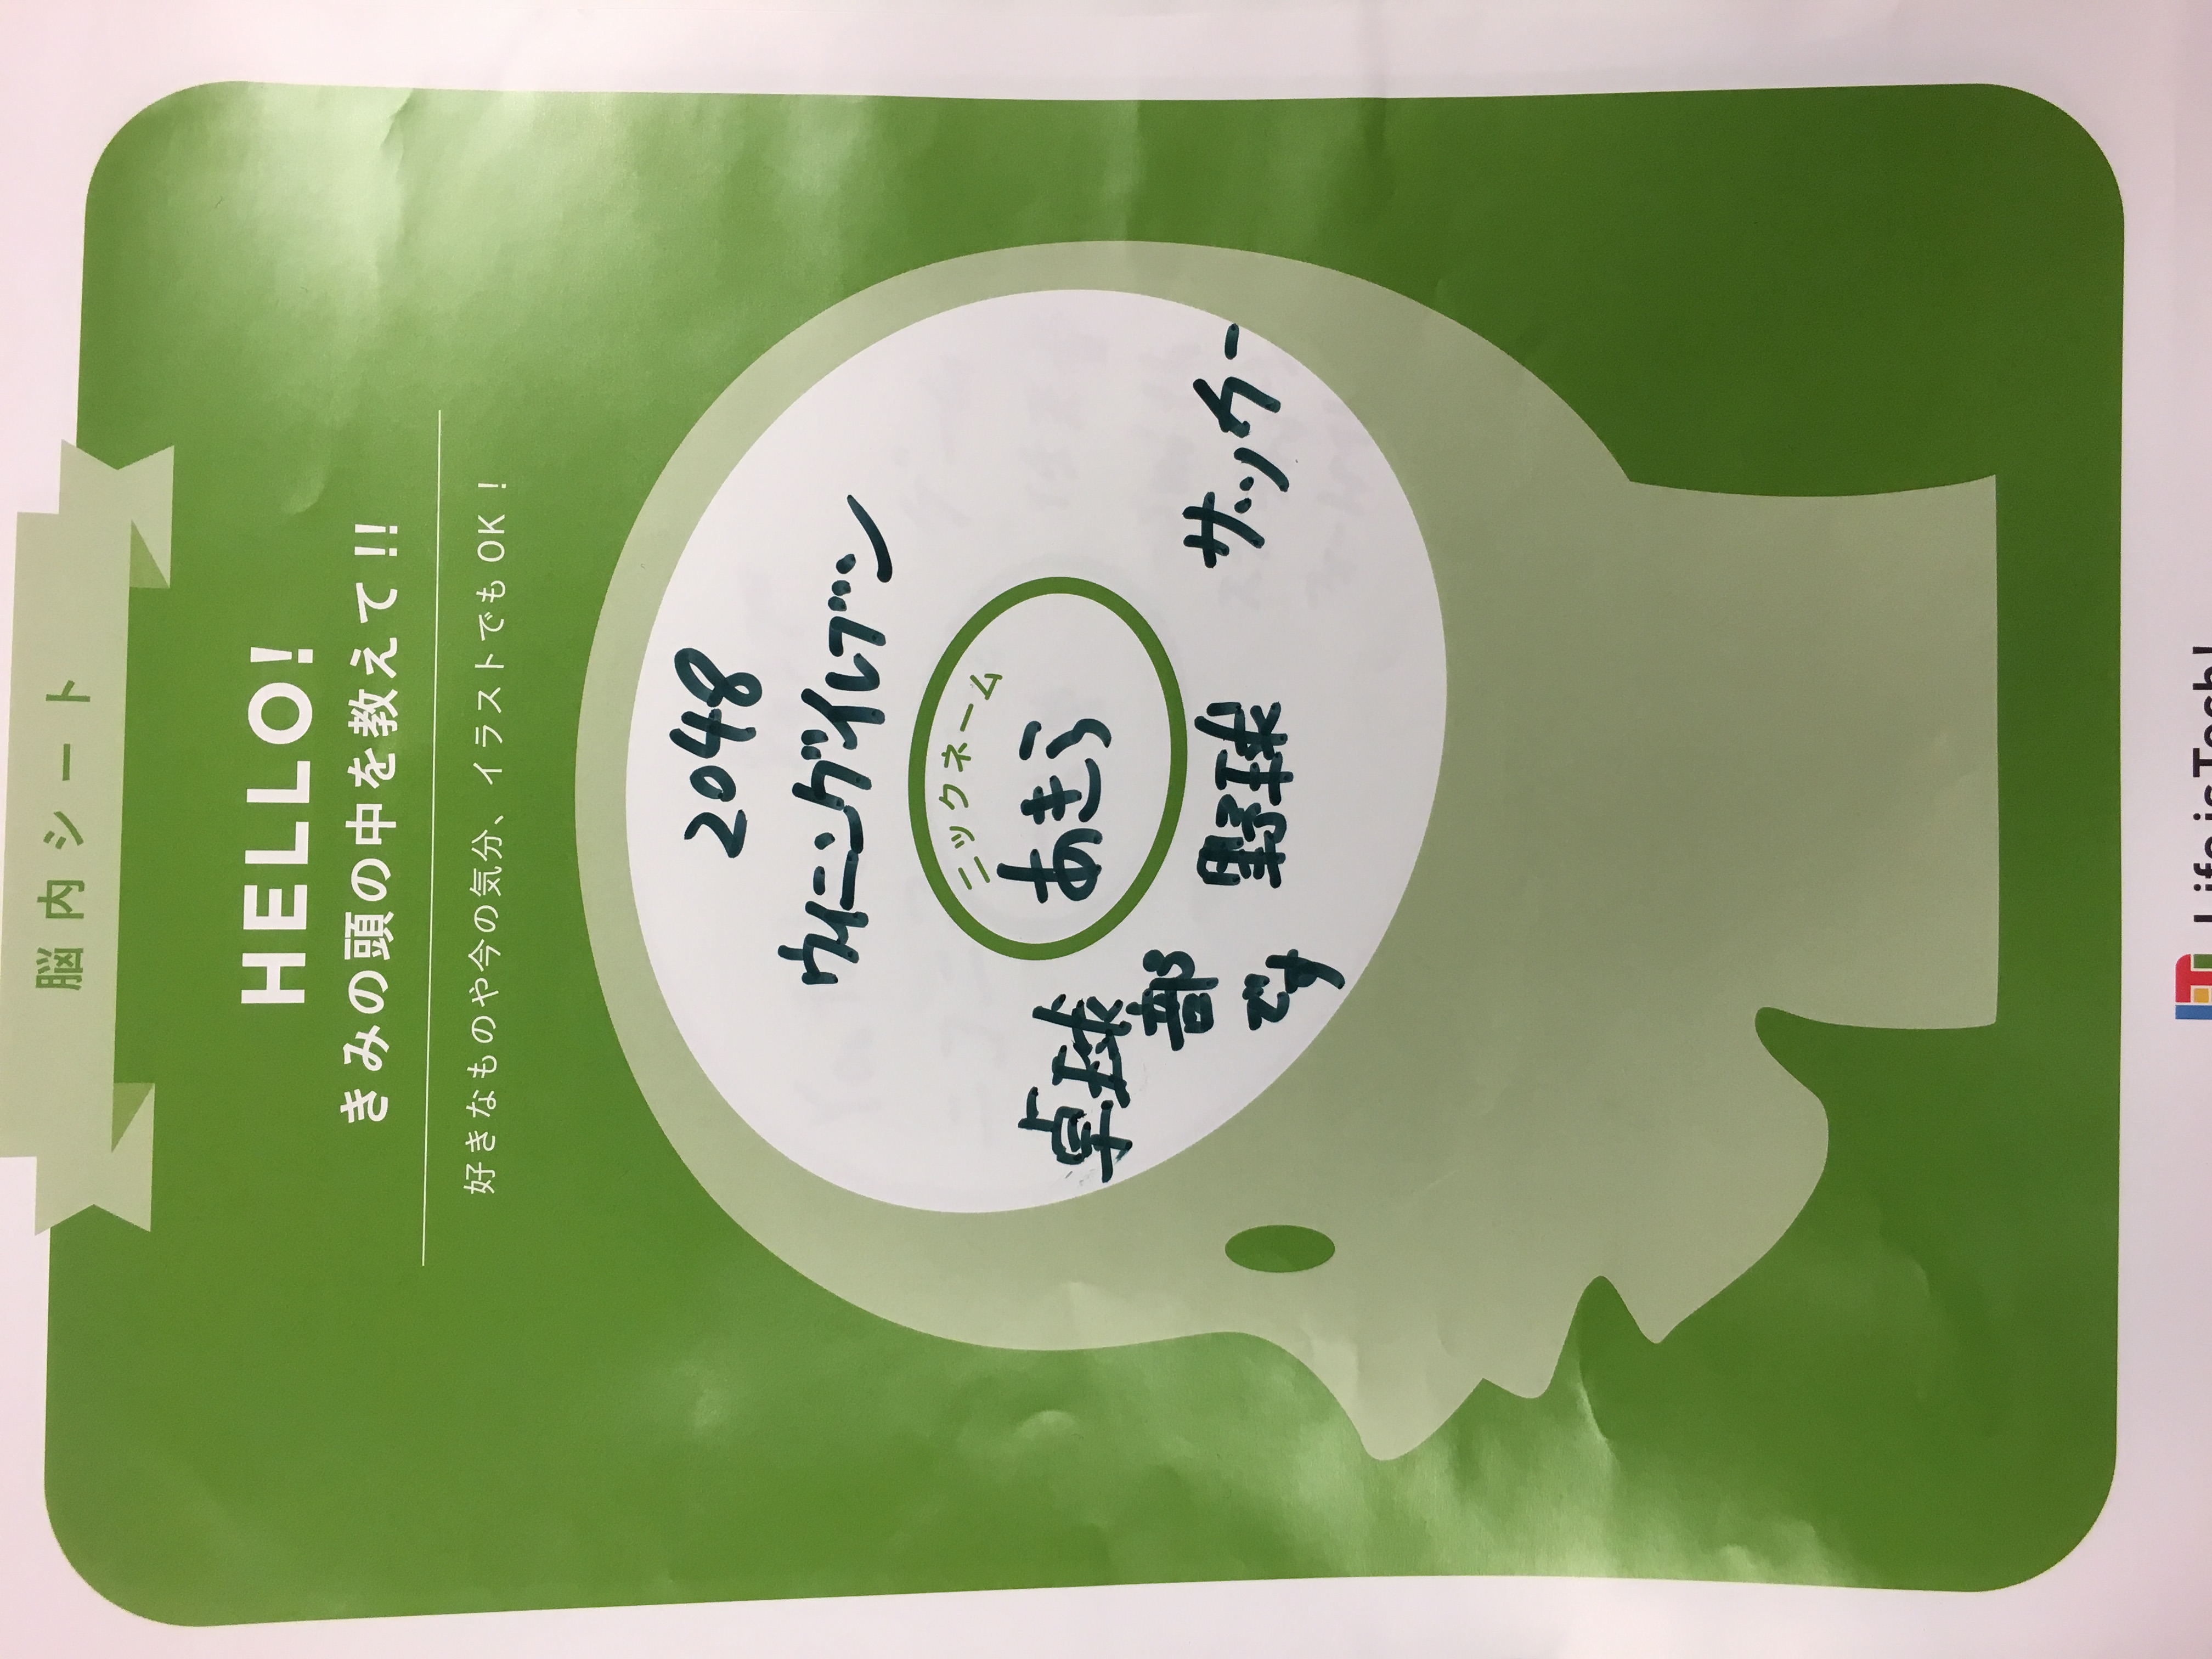 脳内シート
HELLO!
きみの頭の中を教えて!!
好きなものや今の気分、イラストでもOK!
2048
ウイニングイレブン
ニックネーム
あきら
卓球
部
です
野球
サッカー
Life is Tech!